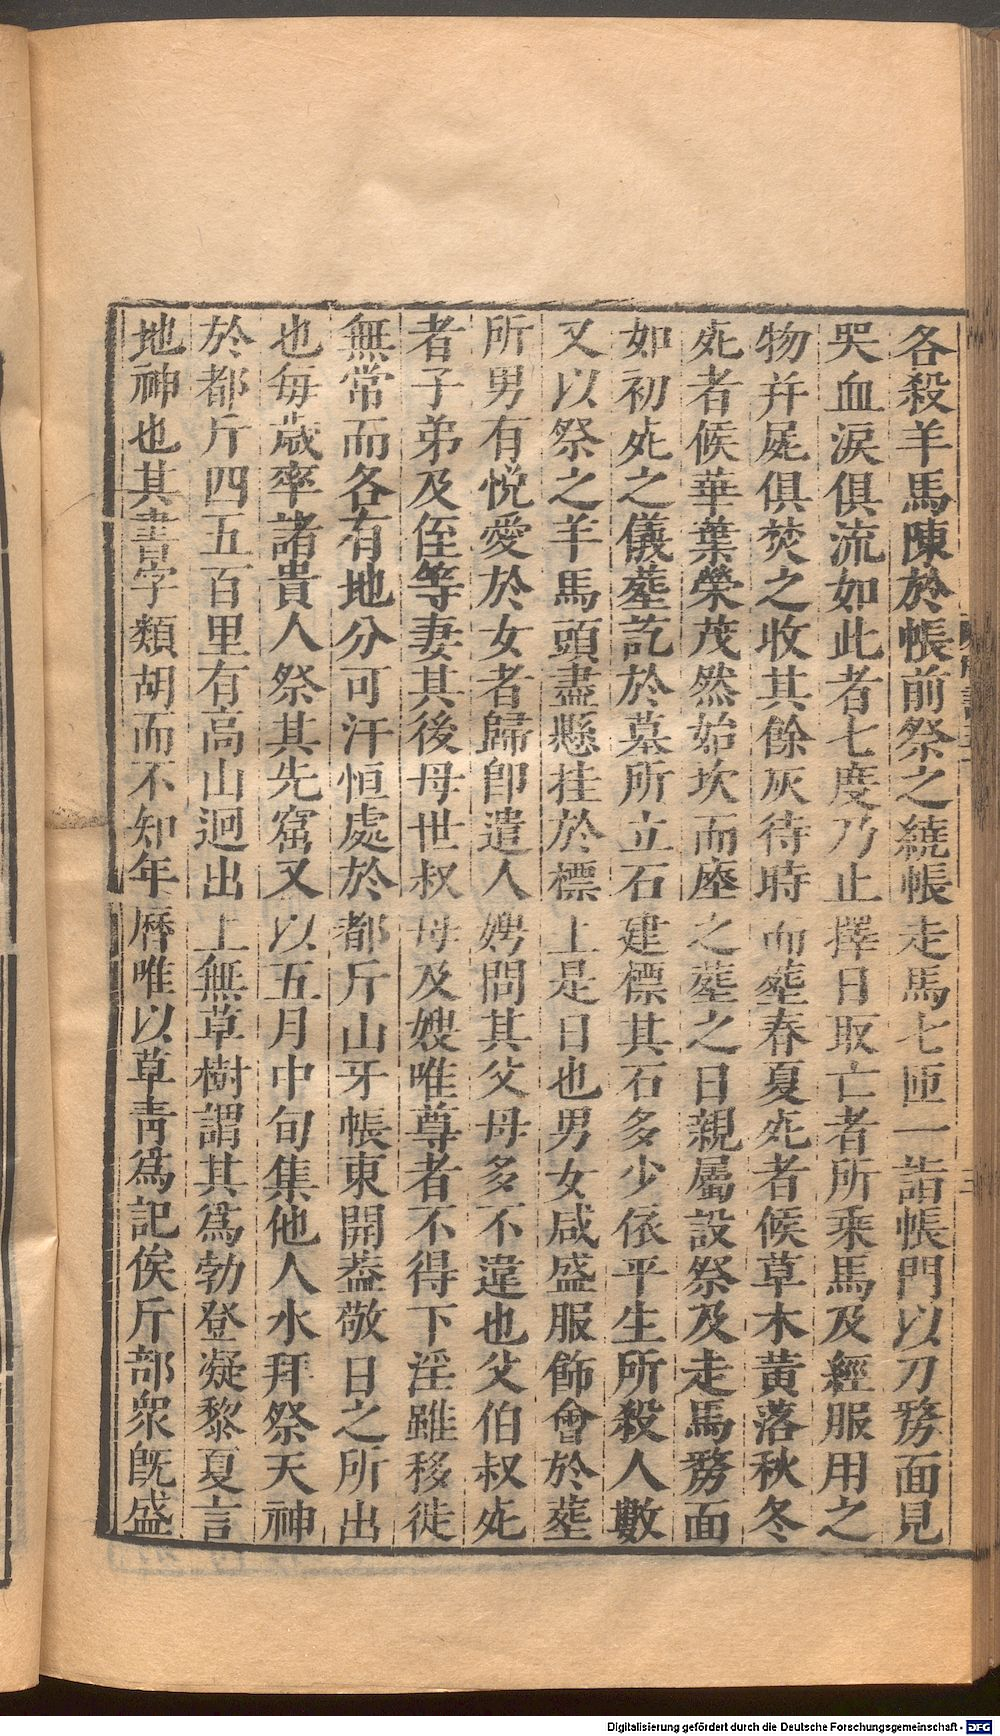 各殺羊馬陳於帳前祭之繞帳走馬七匝一詣帳門以刀剺面見
哭血淚俱流如此者七度乃止擇日取亡者所乘馬及經服用之
物并屍俱焚之收其餘灰待時而塟春夏死者候草木黃落秋冬
死者候華葉榮茂然始坎而座之塟之日親屬設祭及走馬剺面
如初死之儀塟訖於墓所立石建標其石多少依平生所殺人數
又以祭之羊馬頭盡懸挂於標上是日也男女咸盛服飾會於塟
所男有悅愛於女者歸卽遣人娉問其父母多不違也父伯叔死
者子弟及侄等妻其後母世叔母及嫂唯尊者不得下淫雖移徙
無常而各有地分可汗恒處於都斤山牙帳東開葢敬日之所出
也每歲率諸貴人祭其先窟又以五月中旬集他人水拜祭天神
於都斤四五百里有高山迥出上無草樹謂其爲勃登凝黎夏言
地神也其書字類胡而不知年曆唯以草靑爲記俟斤部衆旣盛